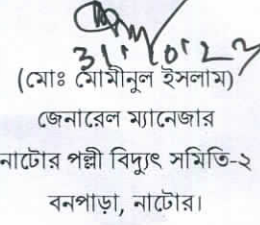 31/10/23
(মোঃ মোমীনুল ইসলাম)
জেনারেল ম্যানেজার
নাটোর পল্লী বিদ্যুৎ সমিতি-২
বনপাড়া, নাটোর।